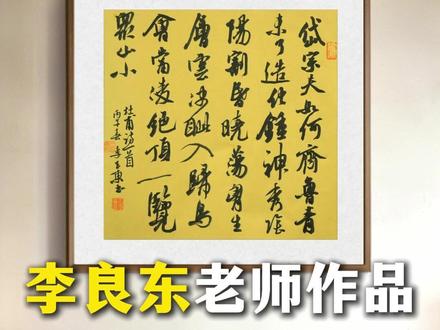 岱宗夫如何齊魯青
未了造化鍾神秀陰
陽割昏曉蕩胸生
層雲決眥入歸鳥
會當凌絕頂一覽
眾山小
杜甫詩一首
李良東書
李良东老师作品